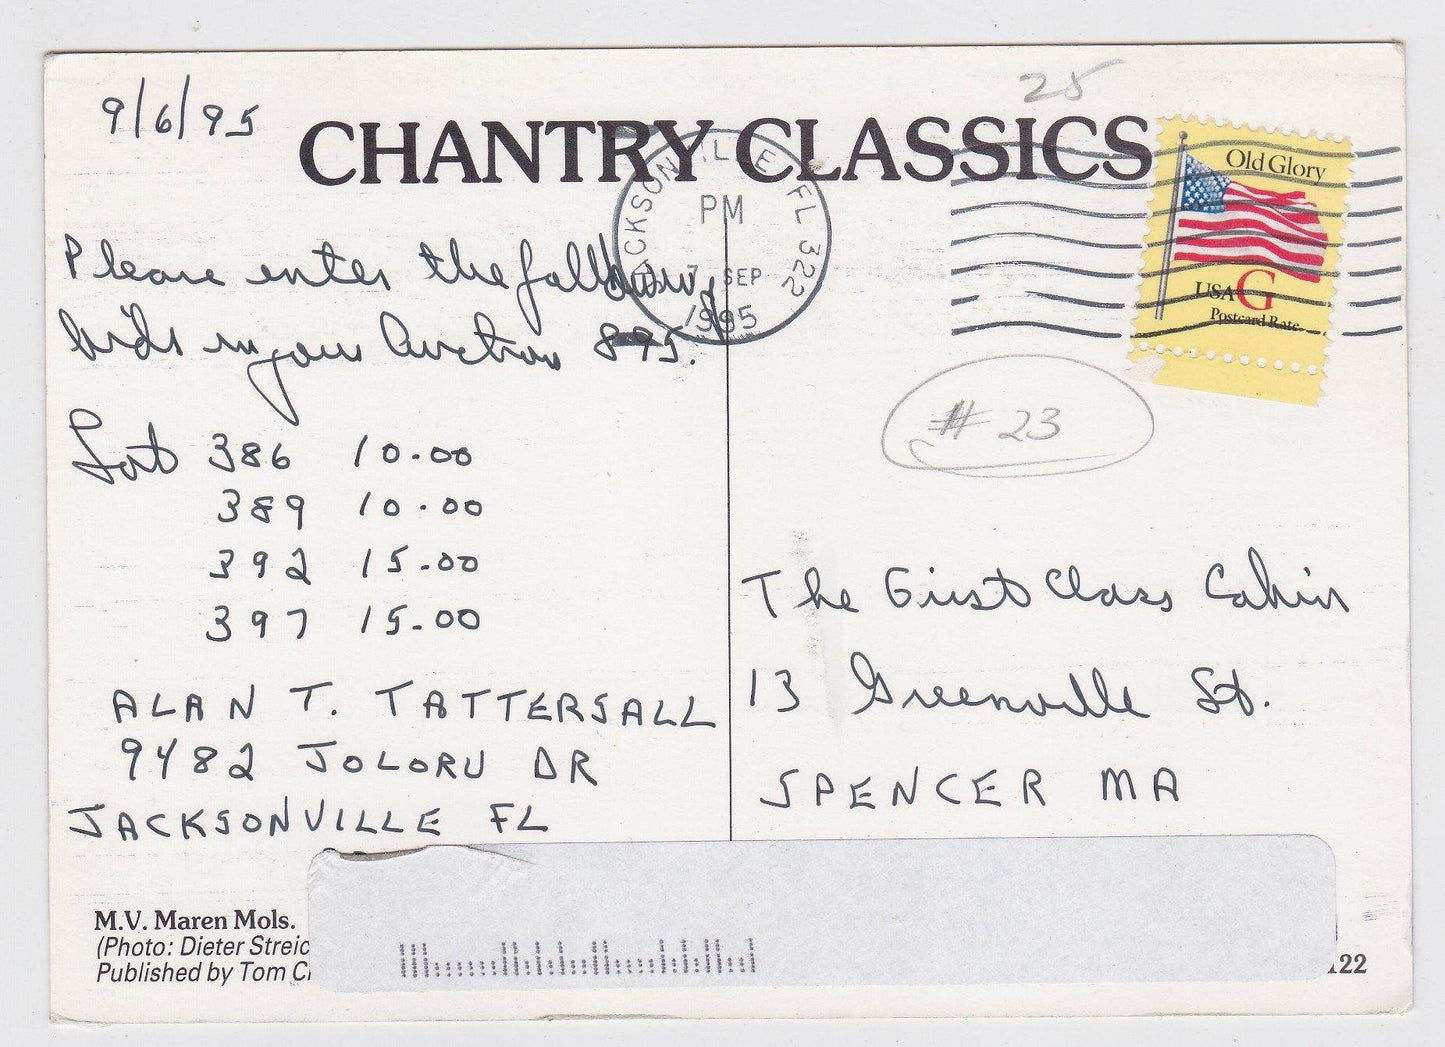 9/6/95
25
CHANTRY CLASSICS
JACKSONVILLE FL 322
PM
7 SEP
1995
Old Glory
USA G
Postcard Rate
Please enter the following
bids in your Auction 895.
Lot 386 10.00
389 10.00
392 15.00
397 15.00
ALAN T. TATTERSALL
9482 JOLORU DR
JACKSONVILLE FL
# 23
The First Class Cabin
13 Greenville St.
SPENCER MA
M.V. Maren Mols.
(Photo: Dieter Streic
Published by Tom C
122